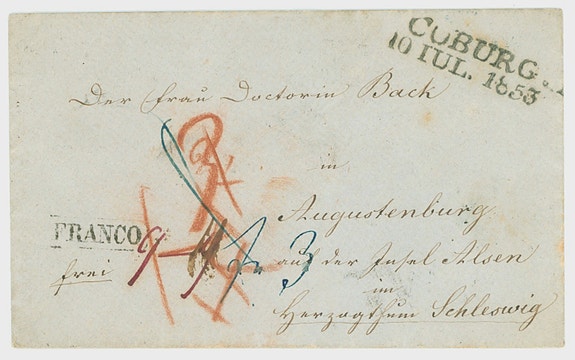 COBURG
10 IUL. 1853
Der Frau Doctorin Back
in
Augustenburg
FRANCO
auf der Insel Alsen
frei
im
Herzogthum Schleswig
3